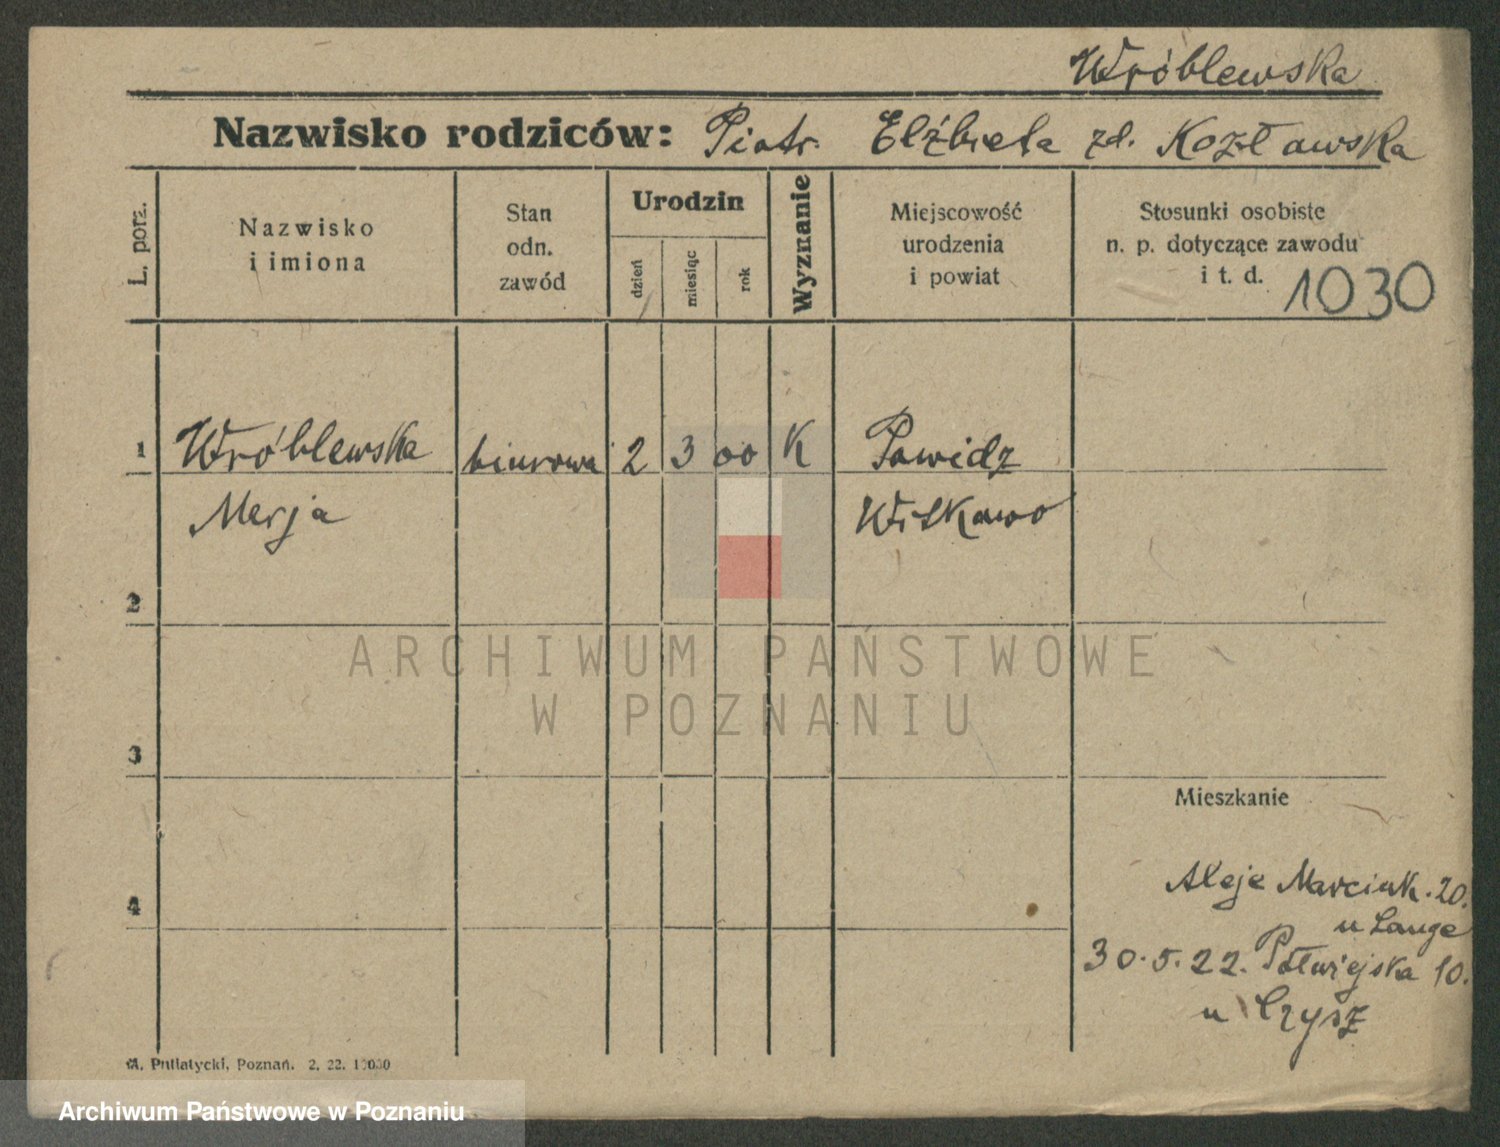 Wróblewska
Nazwisko rodziców: Piotr Elżbieta zd. Kozłowska
L. porz.
Nazwisko
i imiona
Stan
odn.
zawód
Urodzin
dzień
miesiąc
rok
Wyznanie
Miejscowość
urodzenia
i powiat
Stosunki osobiste
n. p. dotyczące zawodu
i t. d.
1030
1 Wróblewska biurowa 2 3 00 K Powidz
Marja Witkowo
2
3
4
Mieszkanie
Aleje Marcink. 20.
u Lange
30.5.22. Półwiejska 10.
u Czysz
Putiatycki, Poznań. 2, 22.
ARCHIWUM PAŃSTWOWE
W POZNANIU
Archiwum Państwowe w Poznaniu